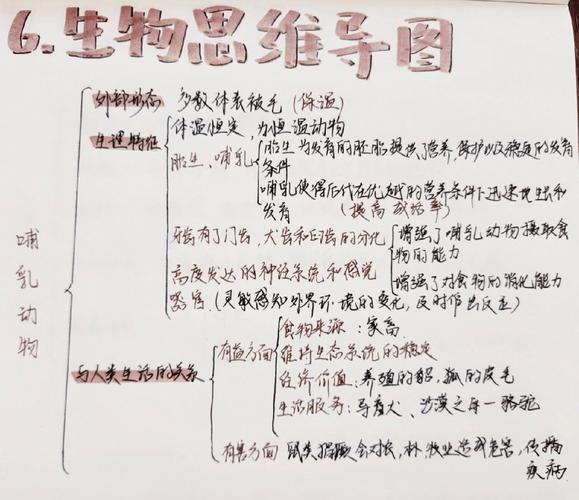 6.生物思维导图
哺乳动物
外部形态 多数体表被毛(保温)
生理特征 体温恒定,为恒温动物
胎生、哺乳 胎生为发育的胚胎提供了营养,保护以及稳定的发育
条件
哺乳使得后代在优越的营养条件下迅速地生长和
发育 (提高成活率)
牙齿有了门齿,犬齿和臼齿的分化 增强了哺乳动物摄取食
物的能力
增强了对食物的消化能力
高度发达的神经系统和感觉
器官(灵敏感知外界环境的变化,及时作出反应)
与人类生活的关系
有益方面 食物来源:家畜
维持生态系统的稳定
经济价值:养殖的貂,狐的皮毛
生活服务:导盲犬、沙漠之舟—骆驼
有害方面 鼠类猖獗会对农,林,牧业造成危害,传播
疾病